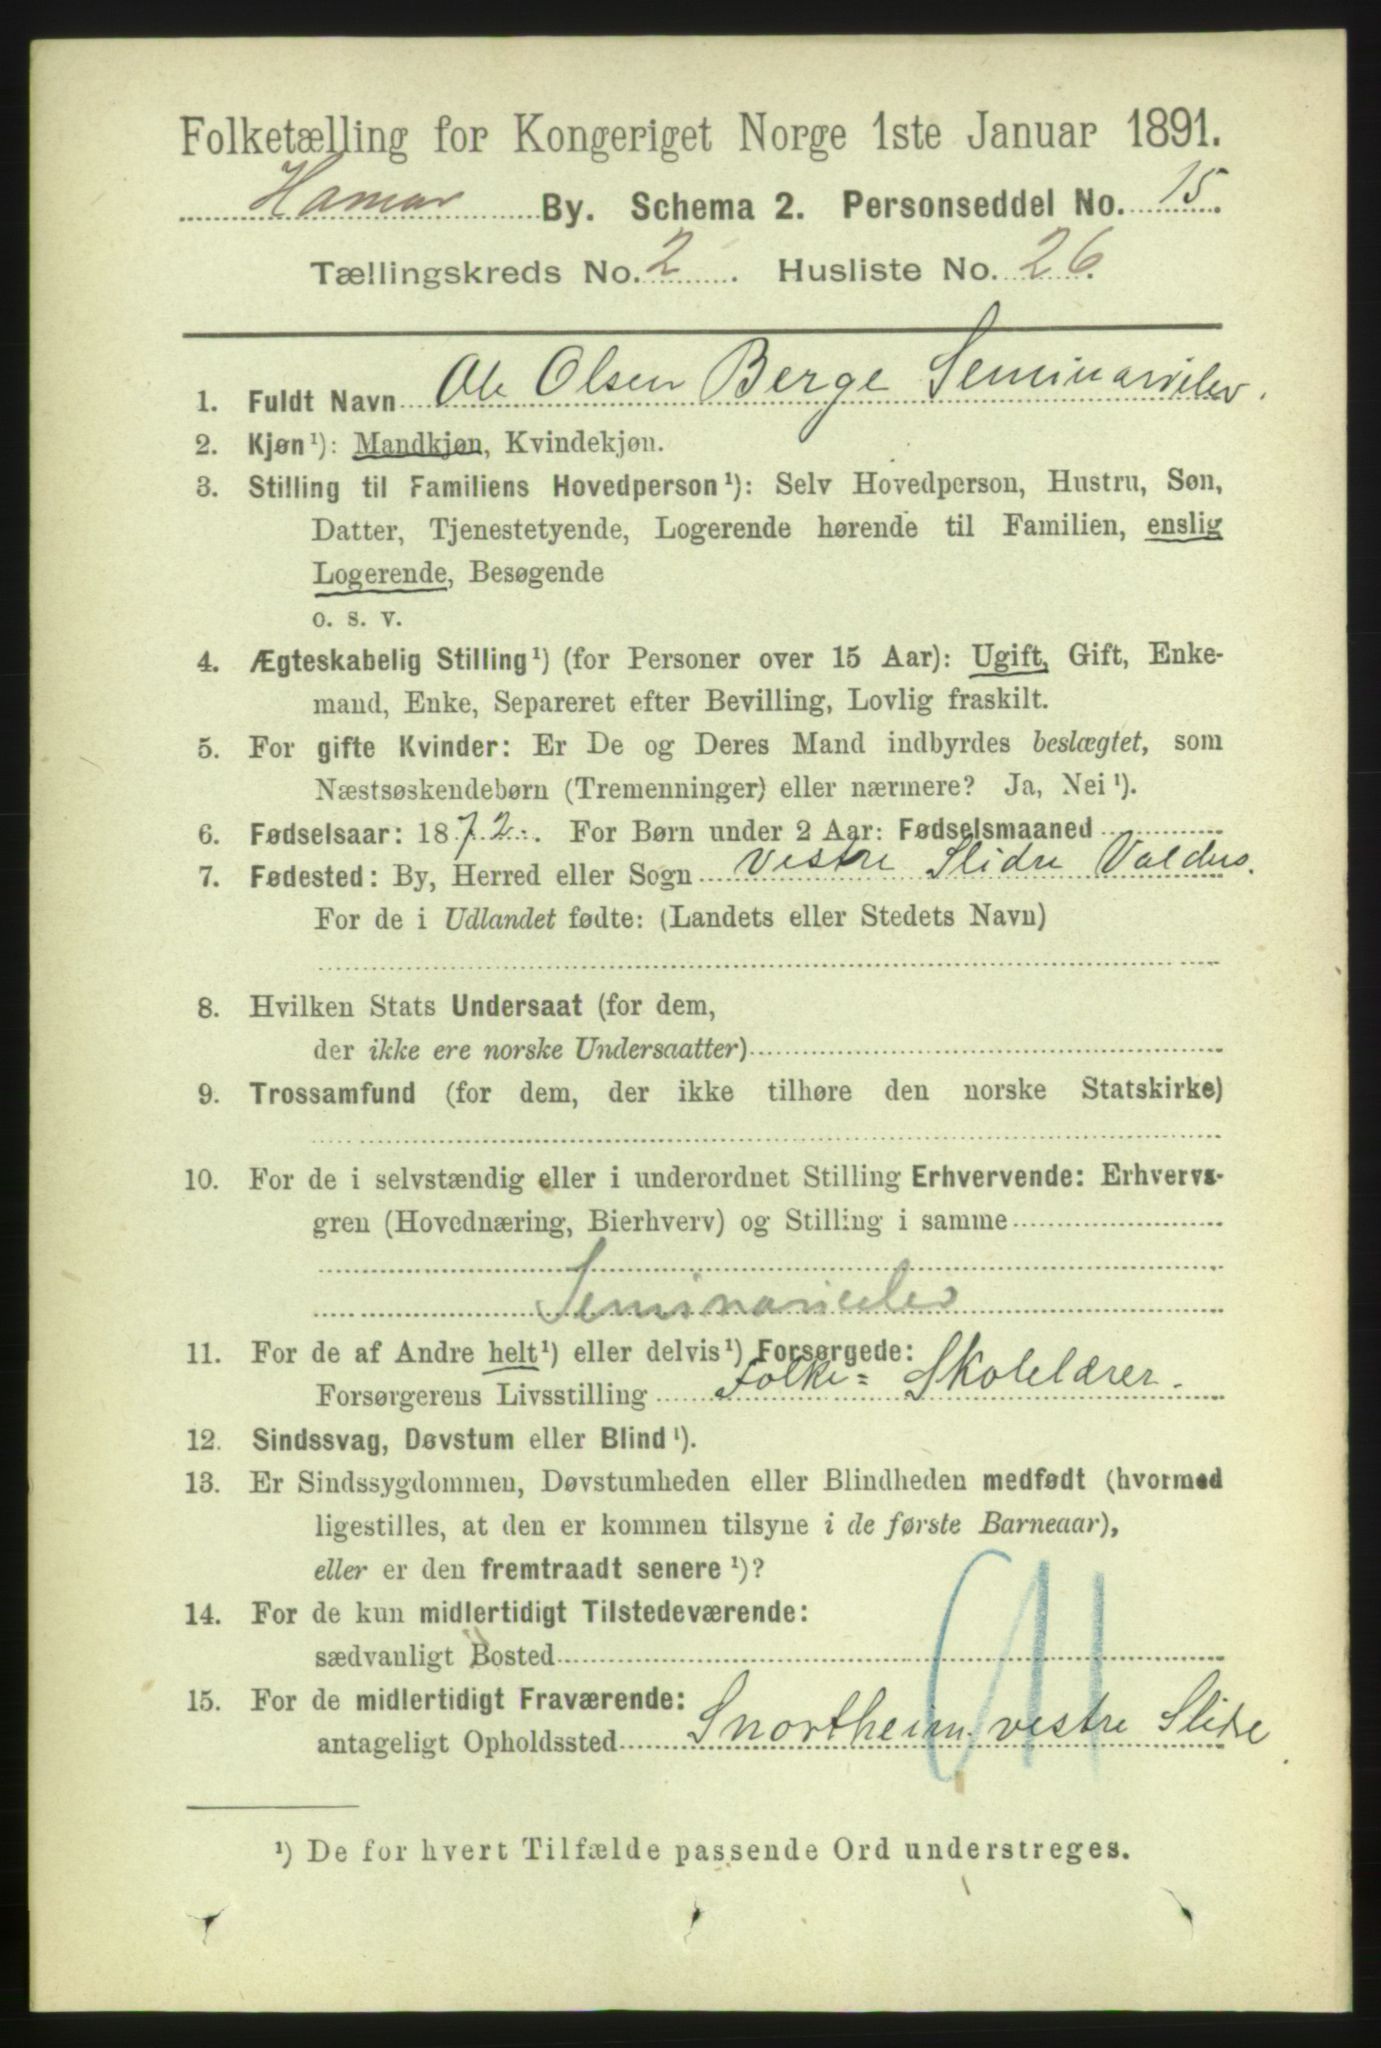 Folketælling for Kongeriget Norge 1ste Januar 1891.
Hamar By. Schema 2. Personseddel No. 15.
Tællingskreds No. 2. Husliste No. 26.
1. Fuldt Navn Ole Olsen Berge Seminarielev.
2. Kjøn¹): Mandkjøn, Kvindekjøn.
3. Stilling til Familiens Hovedperson¹): Selv Hovedperson, Hustru, Søn,
Datter, Tjenestetyende, Logerende hørende til Familien, enslig
Logerende, Besøgende
o. s. v.
4. Ægteskabelig Stilling¹) (for Personer over 15 Aar): Ugift, Gift, Enke-
mand, Enke, Separeret efter Bevilling, Lovlig fraskilt.
5. For gifte Kvinder: Er De og Deres Mand indbyrdes beslægtet, som
Næstsøskendebørn (Tremenninger) eller nærmere? Ja, Nei¹).
6. Fødselsaar: 1872. For Børn under 2 Aar: Fødselsmaaned
7. Fødested: By, Herred eller Sogn Vestre Slidre Valders.
For de i Udlandet fødte: (Landets eller Stedets Navn)
8. Hvilken Stats Undersaat (for dem,
der ikke ere norske Undersaatter)
9. Trossamfund (for dem, der ikke tilhøre den norske Statskirke)
10. For de i selvstændig eller i underordnet Stilling Erhvervende: Erhvervs-
gren (Hovednæring, Bierhverv) og Stilling i samme
Seminarieelev
11. For de af Andre helt¹) eller delvis¹) Forsørgede:
Forsørgerens Livsstilling Folke= Skolelærer.
12. Sindssvag, Døvstum eller Blind¹).
13. Er Sindssygdommen, Døvstumheden eller Blindheden medfødt (hvormed
ligestilles, at den er kommen tilsyne i de første Barneaar),
eller er den fremtraadt senere¹)?
14. For de kun midlertidigt Tilstedeværende:
sædvanligt Bosted
15. For de midlertidigt Fraværende:
antageligt Opholdssted Snortheim vestre Slidre
¹) De for hvert Tilfælde passende Ord understreges.